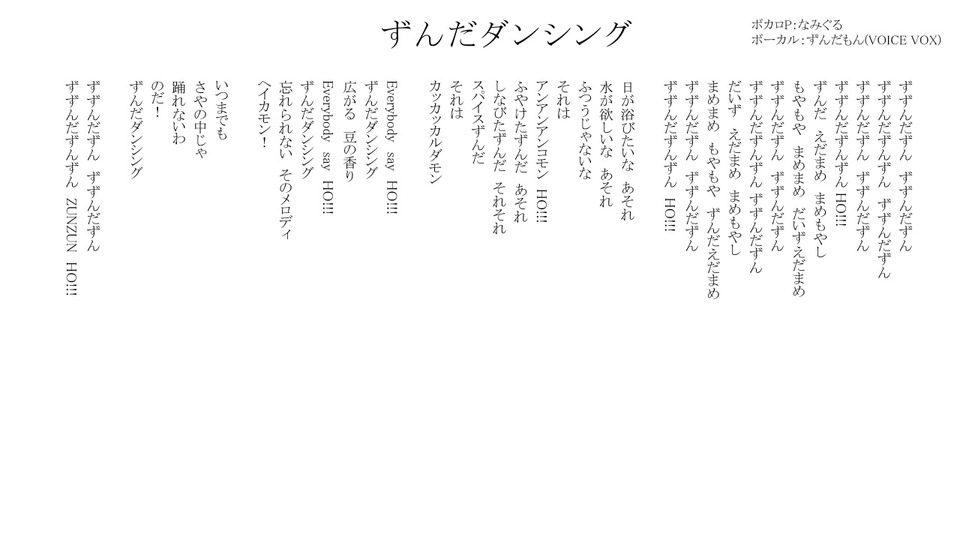 ずんだダンシング
ボカロP：なみぐる
ボーカル：ずんだもん(VOICE VOX)
ずずんだずん　ずずんだずん
ずずんだずんずん　ずずんだずん
ずずんだずん　ずずんだずん
ずずんだずんずん HO!!!
ずんだ　えだまめ　まめもやし
もやもや　まめまめ　だいずえだまめ
ずずんだずん　ずずんだずん
ずずんだずんずん　ずずんだずん
だいず　えだまめ　まめもやし
まめまめ　もやもや　ずんだえだまめ
ずずんだずん　ずずんだずん
ずずんだずんずん　HO!!!
日が浴びたいな　あそれ
水が欲しいな　あそれ
ふつうじゃないな
それは
アンアンアンコモン　HO!!!
ふやけたずんだ　あそれ
しなびたずんだ　それそれ
スパイスずんだ
それは
カッカッカルダモン
Everybody　say　HO!!!
ずんだダンシング
広がる　豆の香り
Everybody　say　HO!!!
ずんだダンシング
忘れられない　そのメロディ
ヘイカモン！
いつまでも
さやの中じゃ
踊れないわ
のだ！
ずんだダンシング
ずずんだずん　ずずんだずん
ずずんだずんずん　ZUNZUN　HO!!!